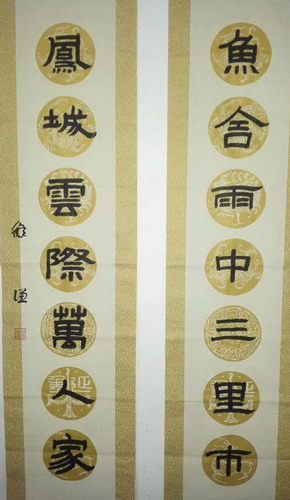 魚舍雨中三里市
鳳城雲際萬人家